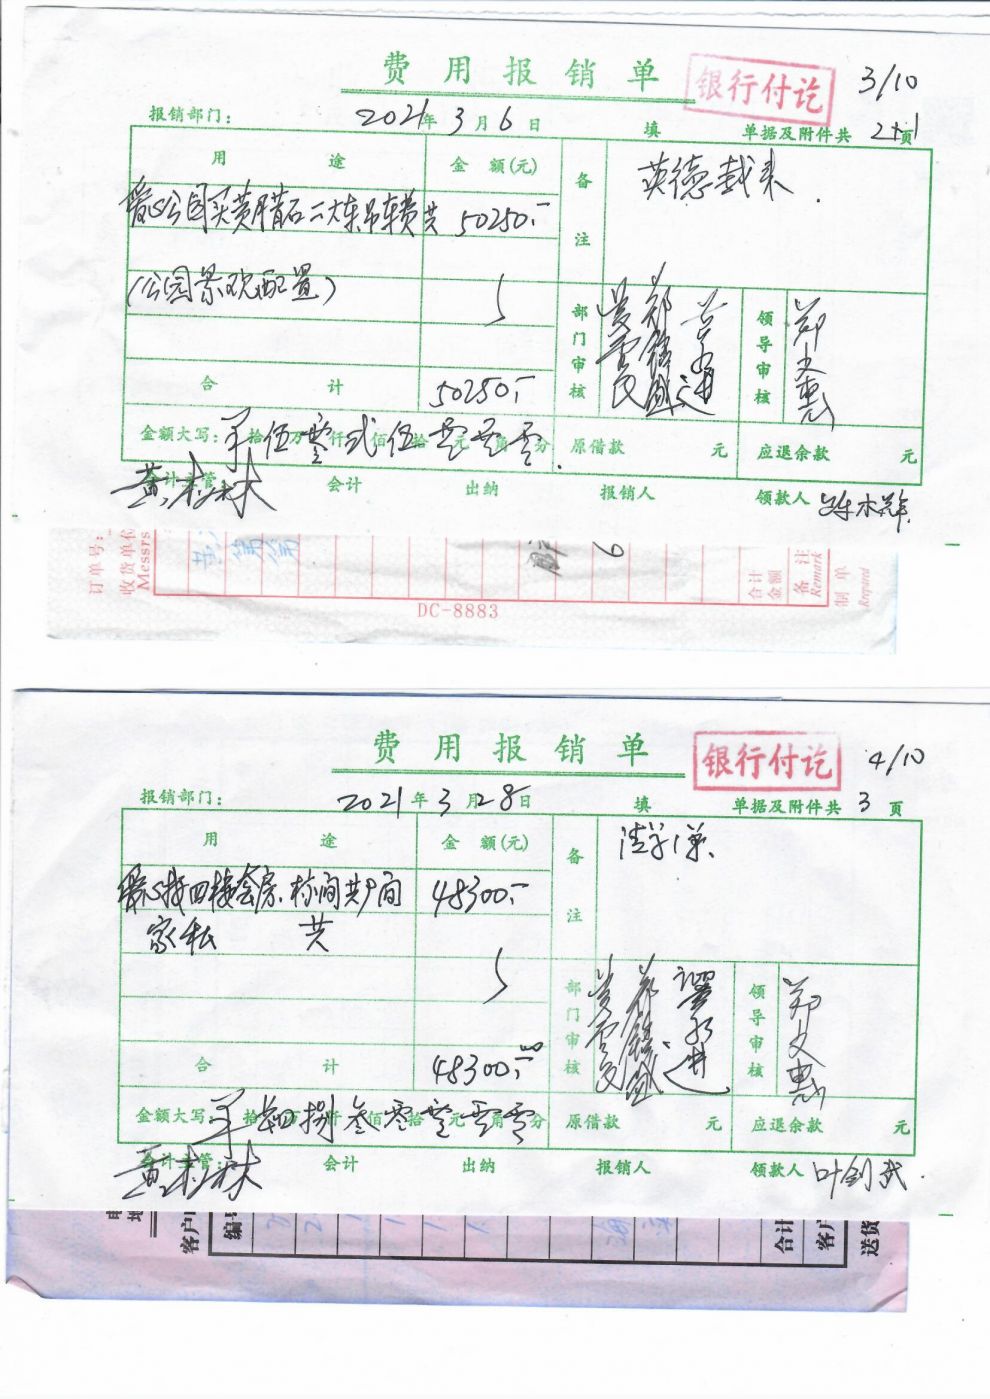 费用报销单
银行付讫
3/10
报销部门：
2021年3月6日
填
单据及附件共 2+1 页
用途
金额(元)
备注
英德载来.
爱心公园买黄腊石二大车吊车费共
50250.-
(公园景观配置)
部门审核
领导审核
郑文惠
合计
50250.-
金额大写：
拾伍万零仟贰佰伍拾零元零角零分
原借款 元
应退余款 元
会计主管：
黄树林
会计
出纳
报销人
领款人
订单号：
收货单位
Messrs
6
合计
金额
备注
Remark
制单
DC-8883
费用报销单
银行付讫
4/10
报销部门：
2021年3月28日
填
单据及附件共 3 页
用途
金额(元)
备注
爱心楼四楼套房.标间共9间
48300.-
家私 共
部门审核
领导审核
郑文惠
合计
48300.-
金额大写：
拾肆万捌仟叁佰零拾零元零角零分
原借款 元
应退余款 元
会计主管：
黄树林
会计
出纳
报销人
领款人
叶剑武.
客户
编号
合计
客户
送货